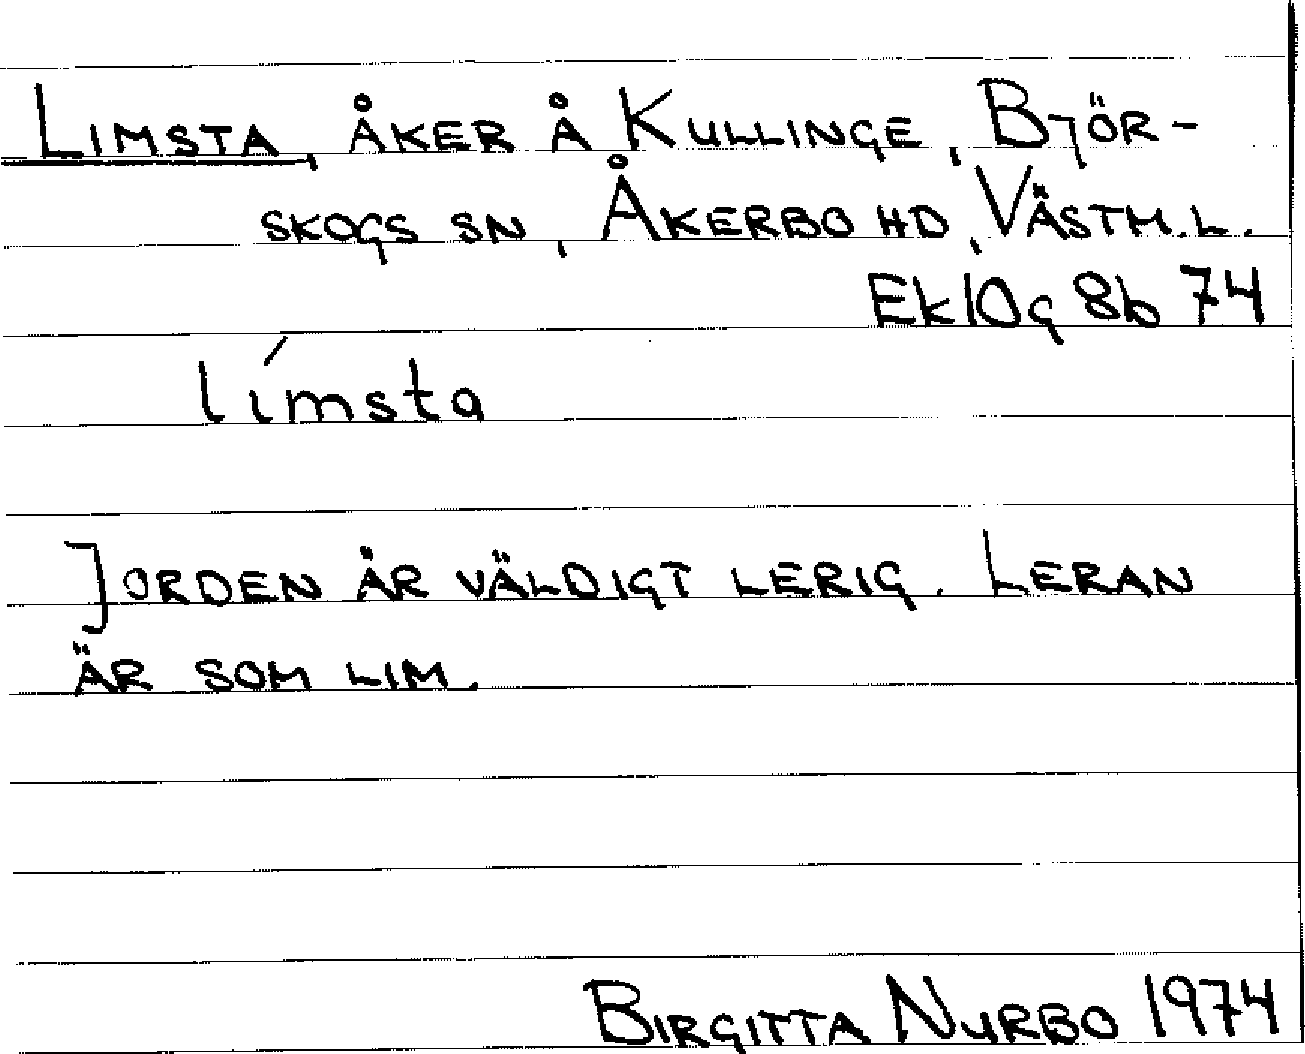 Limsta, åker å Kullinge, Björ-
skogs sn, Åkerbo hd, Västm.l.
Ek 10g 8b 74
límsta
Jorden är väldigt lerig. Leran
är som lim.
Birgitta Nyrbo 1974